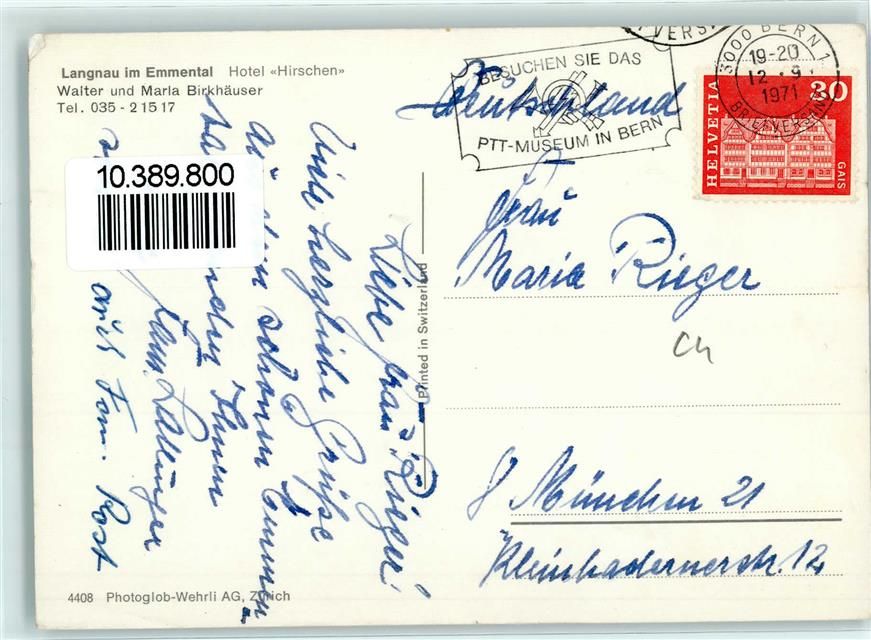 Langnau im Emmental Hotel «Hirschen»
Walter und Marla Birkhäuser
Tel. 035 - 2 15 17
10.389.800
Liebe Frau Rieger!
Viele herzliche Grüße
aus dem schönen Emmen-
senden Ihnen
auch Fam. Rost
4408 Photoglob-Wehrli AG, Zürich
Printed in Switzerland
BESUCHEN SIE DAS
PTT-MUSEUM IN BERN
3000 BERN 1
19-20
12.-9.
1971
BRIEFVERSAND
HELVETIA
30
GAIS
Deutschland
Frau
Maria Rieger
Ch
8 München 21
Kleinhadernerstr. 12